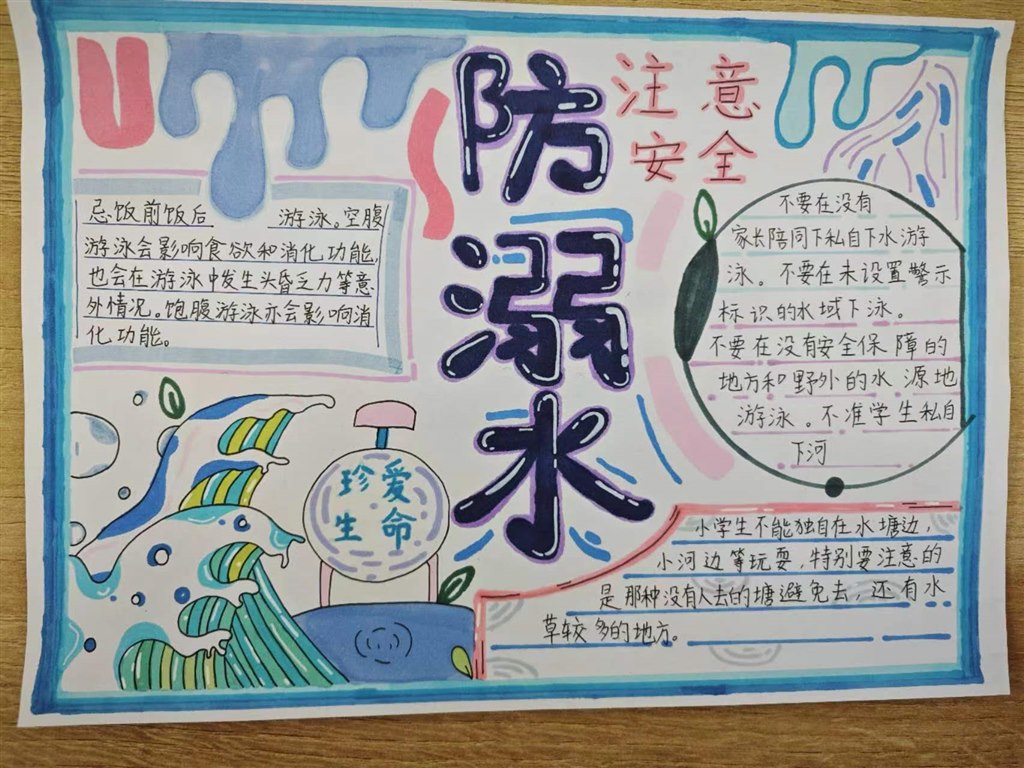 防溺水
注意
安全
忌饭前饭后 游泳。空腹
游泳会影响食欲和消化功能,
也会在游泳中发生头昏乏力等意
外情况。饱腹游泳亦会影响消
化功能。
不要在没有
家长陪同下私自下水游
泳。不要在未设置警示
标识的水域下泳。
不要在没有安全保障的
地方和野外的水源地
游泳。不准学生私自
下河
珍爱
生命
小学生不能独自在水塘边,
小河边等玩耍,特别要注意的
是那种没有人去的塘避免去,还有水
草较多的地方。